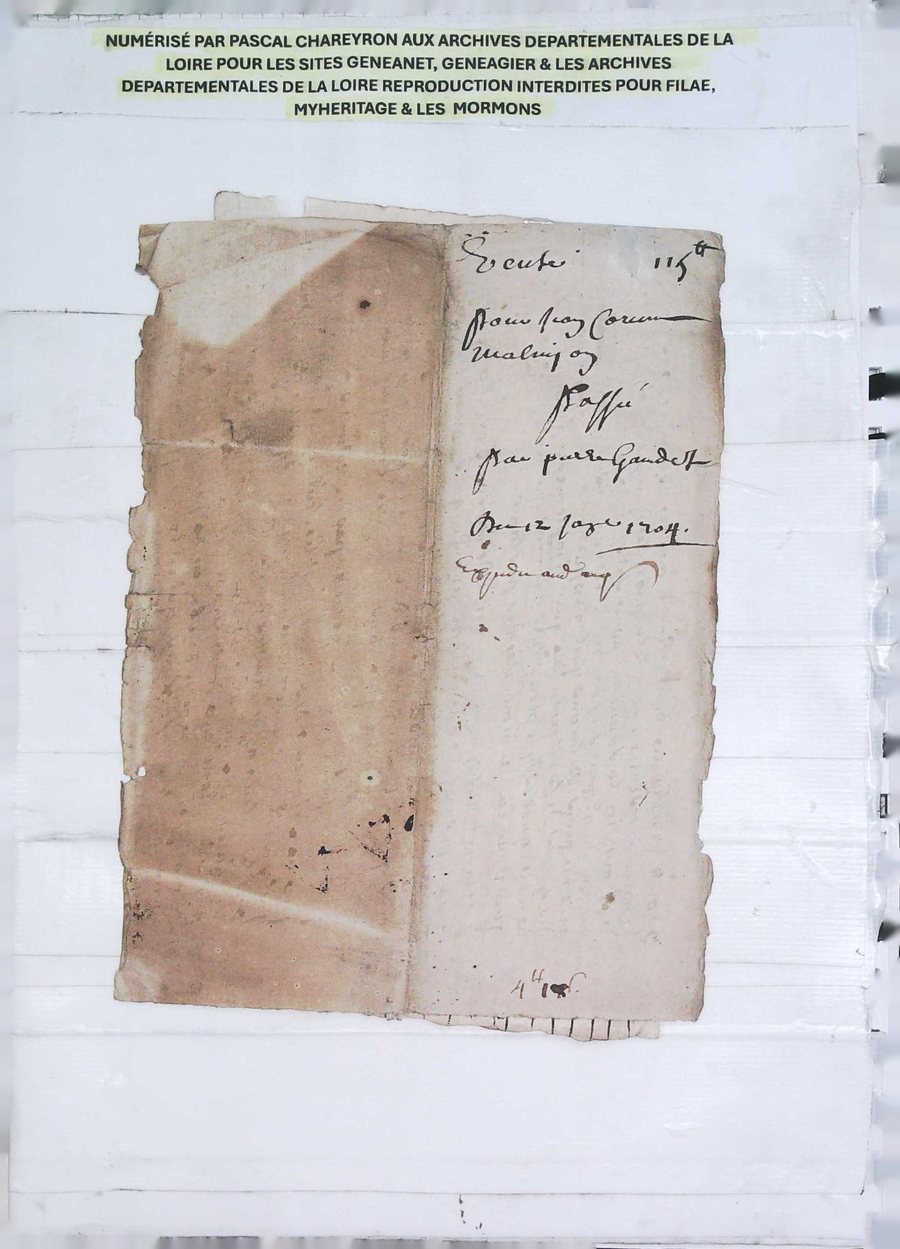 NUMÉRISÉ PAR PASCAL CHAREYRON AUX ARCHIVES DEPARTEMENTALES DE LA
LOIRE POUR LES SITES GENEANET, GENEAGIER & LES ARCHIVES
DEPARTEMENTALES DE LA LOIRE REPRODUCTION INTERDITES POUR FILAE,
MYHERITAGE & LES MORMONS
Vente 115tt
pour Jean
passé
par pierre Gaudet
Du 12 1704.